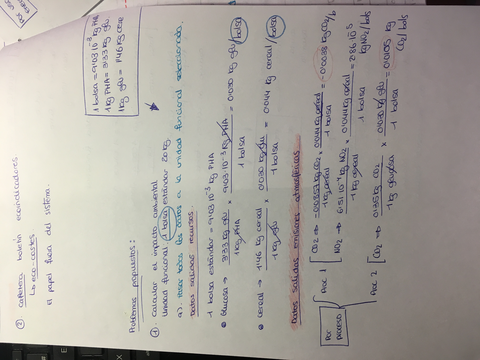 ② cafetera boletín ecoindicadores
↳ eco-costes
el papel fuera del sistema.
Problemas propuestos:
1 bolsa = 9'03·10⁻³ kg PHA
1 kg PHA = 3'33 kg glu
1 kg glu = 1'46 kg cereal
① calcular el impacto ambiental
unidad funcional 1 bolsa estándar 20 kg.
a) Pasar todos los datos a la unidad funcional seleccionada.
Datos salidas recursos.
1 bolsa estándar = 9'03·10⁻³ kg PHA
• Glucosa → 3'33 kg glu / 1 kg PHA × 9'03·10⁻³ kg PHA / 1 bolsa = 0'030 kg glu/bolsa
• cereal → 1'46 kg cereal / 1 kg glu × 0'030 kg glu / 1 bolsa = 0'044 kg cereal/bolsa
Datos salidas emisiones atmosféricas
Por proceso
Proc. 1 CO2 → kg CO2 / 1 kg cereal × 0'044 kg cereal / 1 bolsa = -0'0038 kg CO2/b
NO2 → 6'51·10⁻⁴ kg NO2 / 1 kg cereal × 0'044 kg cereal / 1 bolsa = 2'86·10⁻⁵ kg NO2/bols
Proc. 2 CO2 → kg CO2 / 1 kg glucosa × 0'030 kg glu / 1 bolsa = kg CO2/bols